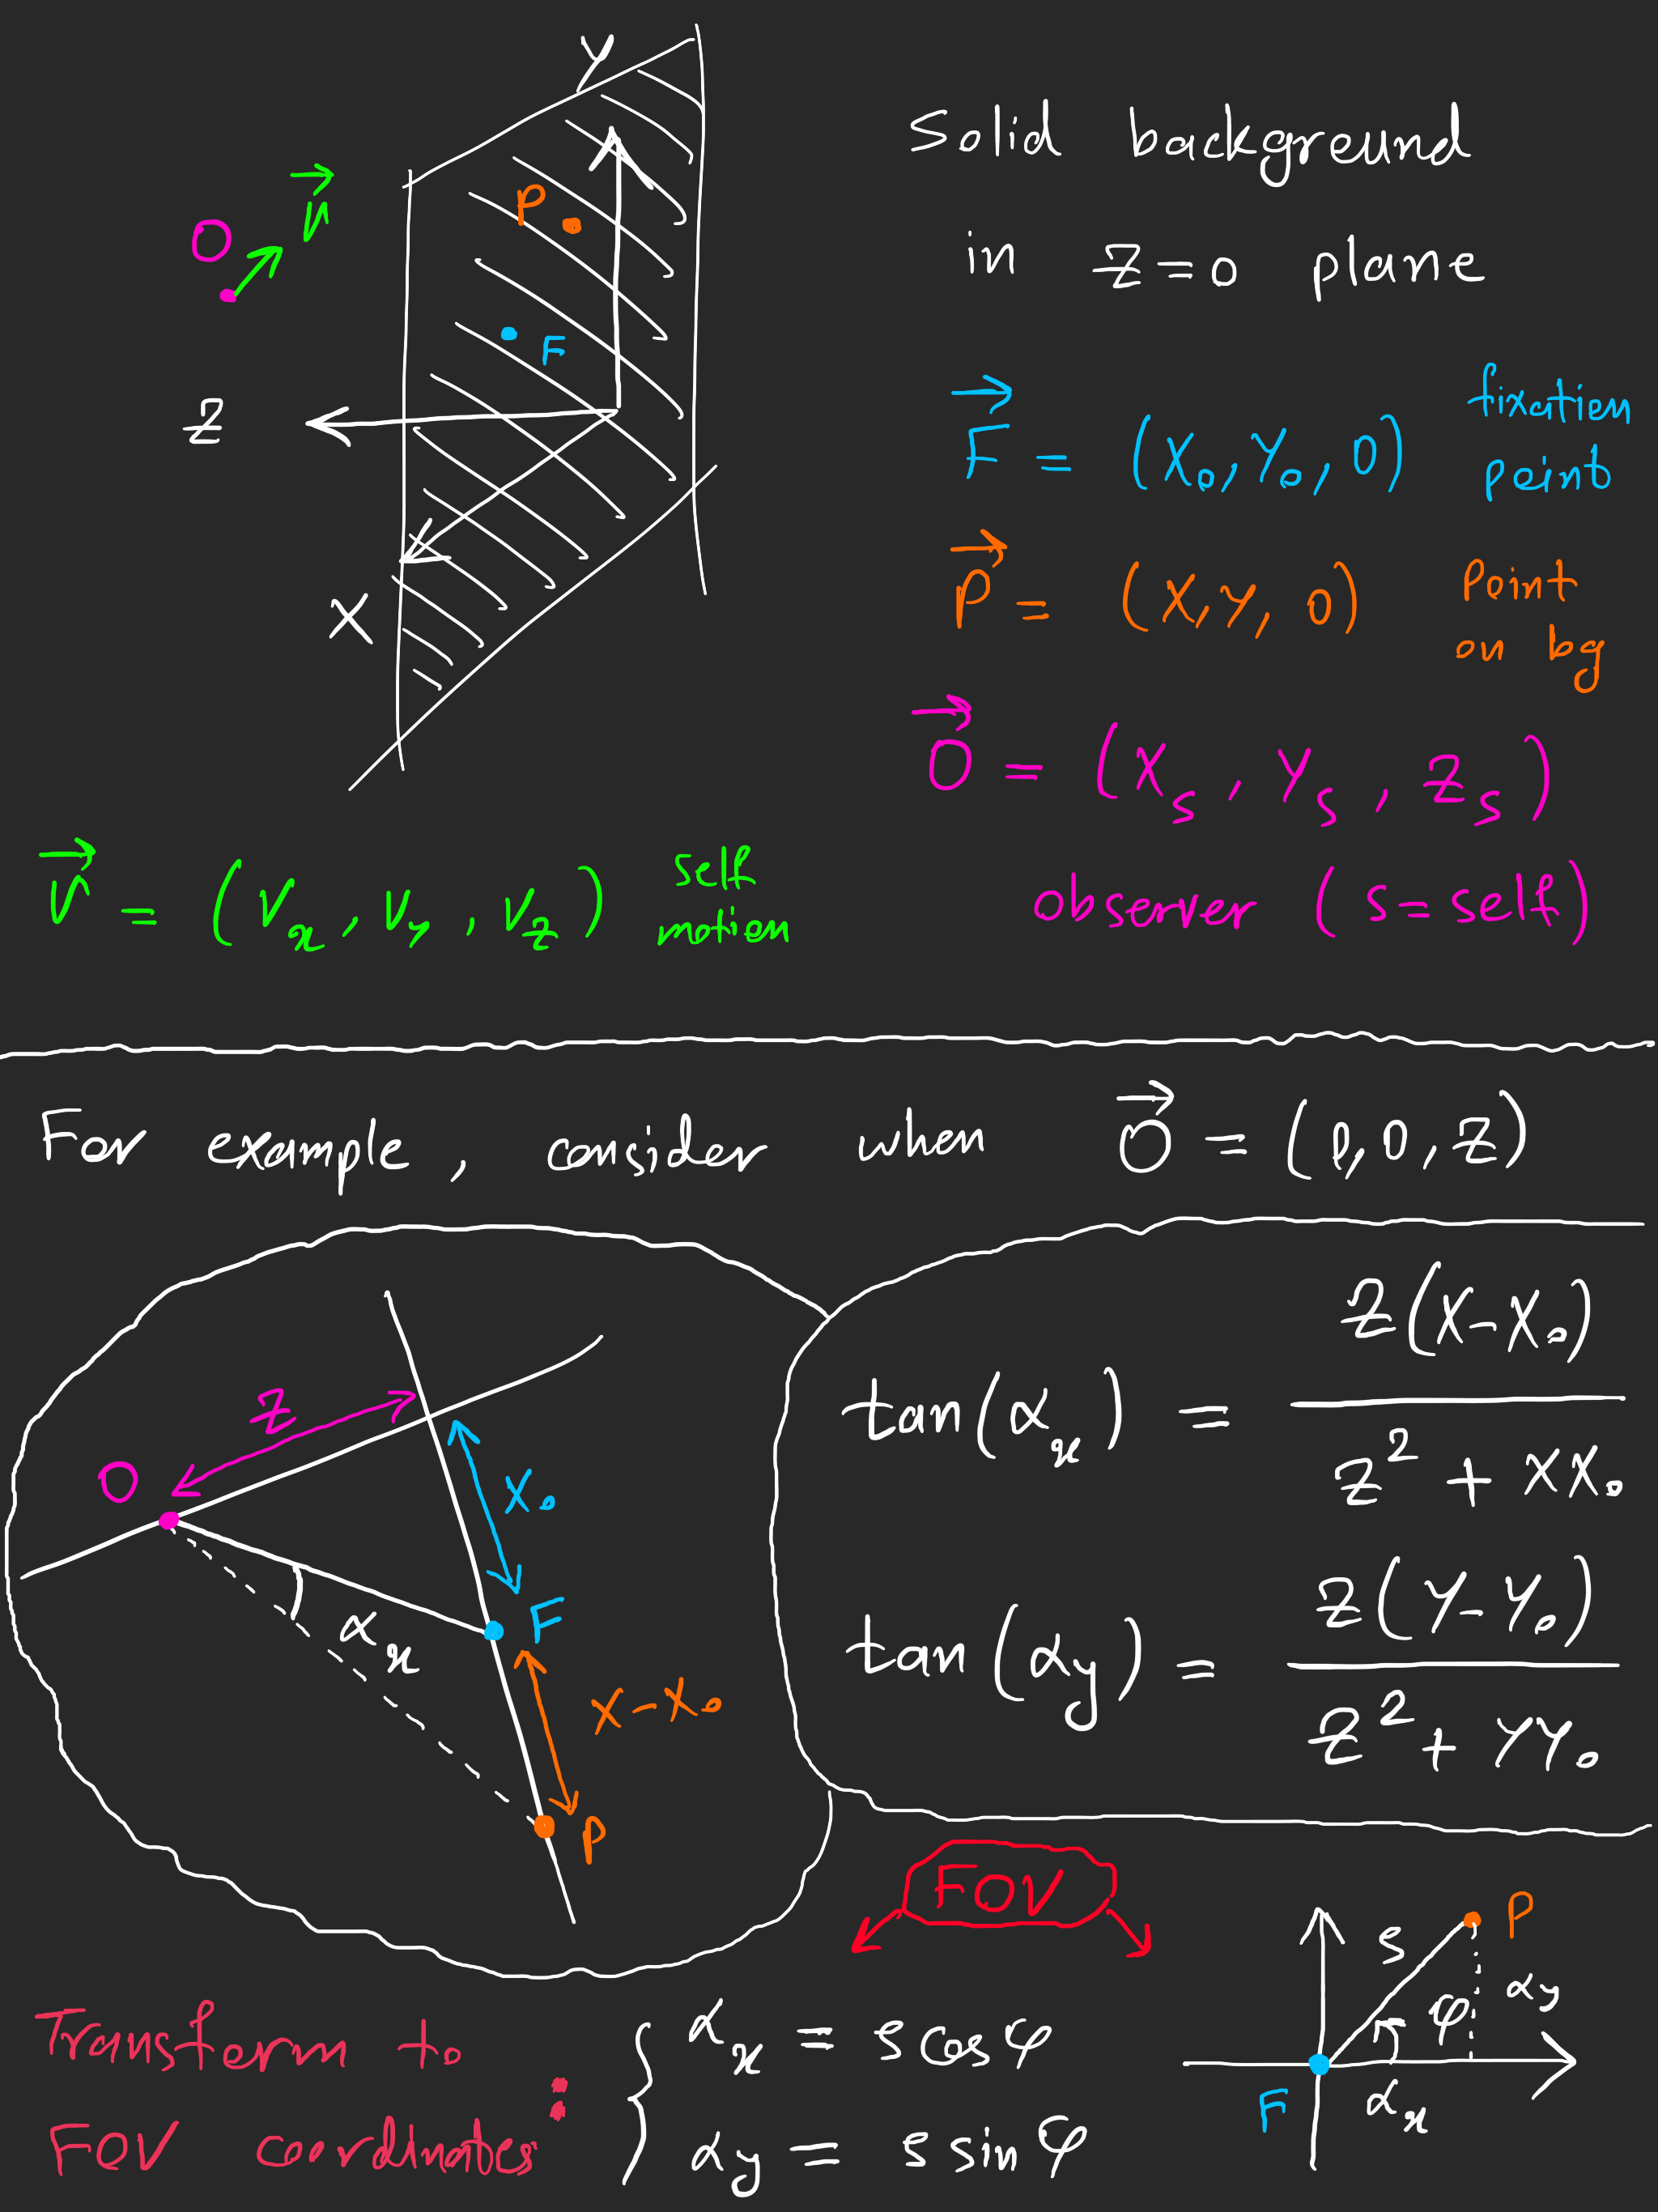 Y
V⃗
O
P
F
Z
X
Solid background
in z=0 plane
F⃗ = (X₀, Y₀, 0) fixation point
P⃗ = (X, Y, 0) point on bg
O⃗ = (Xₛ, Yₛ, Zₛ)
observer (s = self)
V⃗ = (Vₓ, Vy, Vz) self motion
For example, consider when O⃗ = (0, 0, Z)
Z
O
X₀
F
αₓ
X-X₀
P
tan(αₓ) = Z(X-X₀) / Z² + XX₀
tan(αy) = Z(Y-Y₀) / Z² + YY₀
FOV
Transform to
FoV coordnates:
αₓ = s cos φ
αy = s sin φ
P
s
φ
αy
F
αₓ